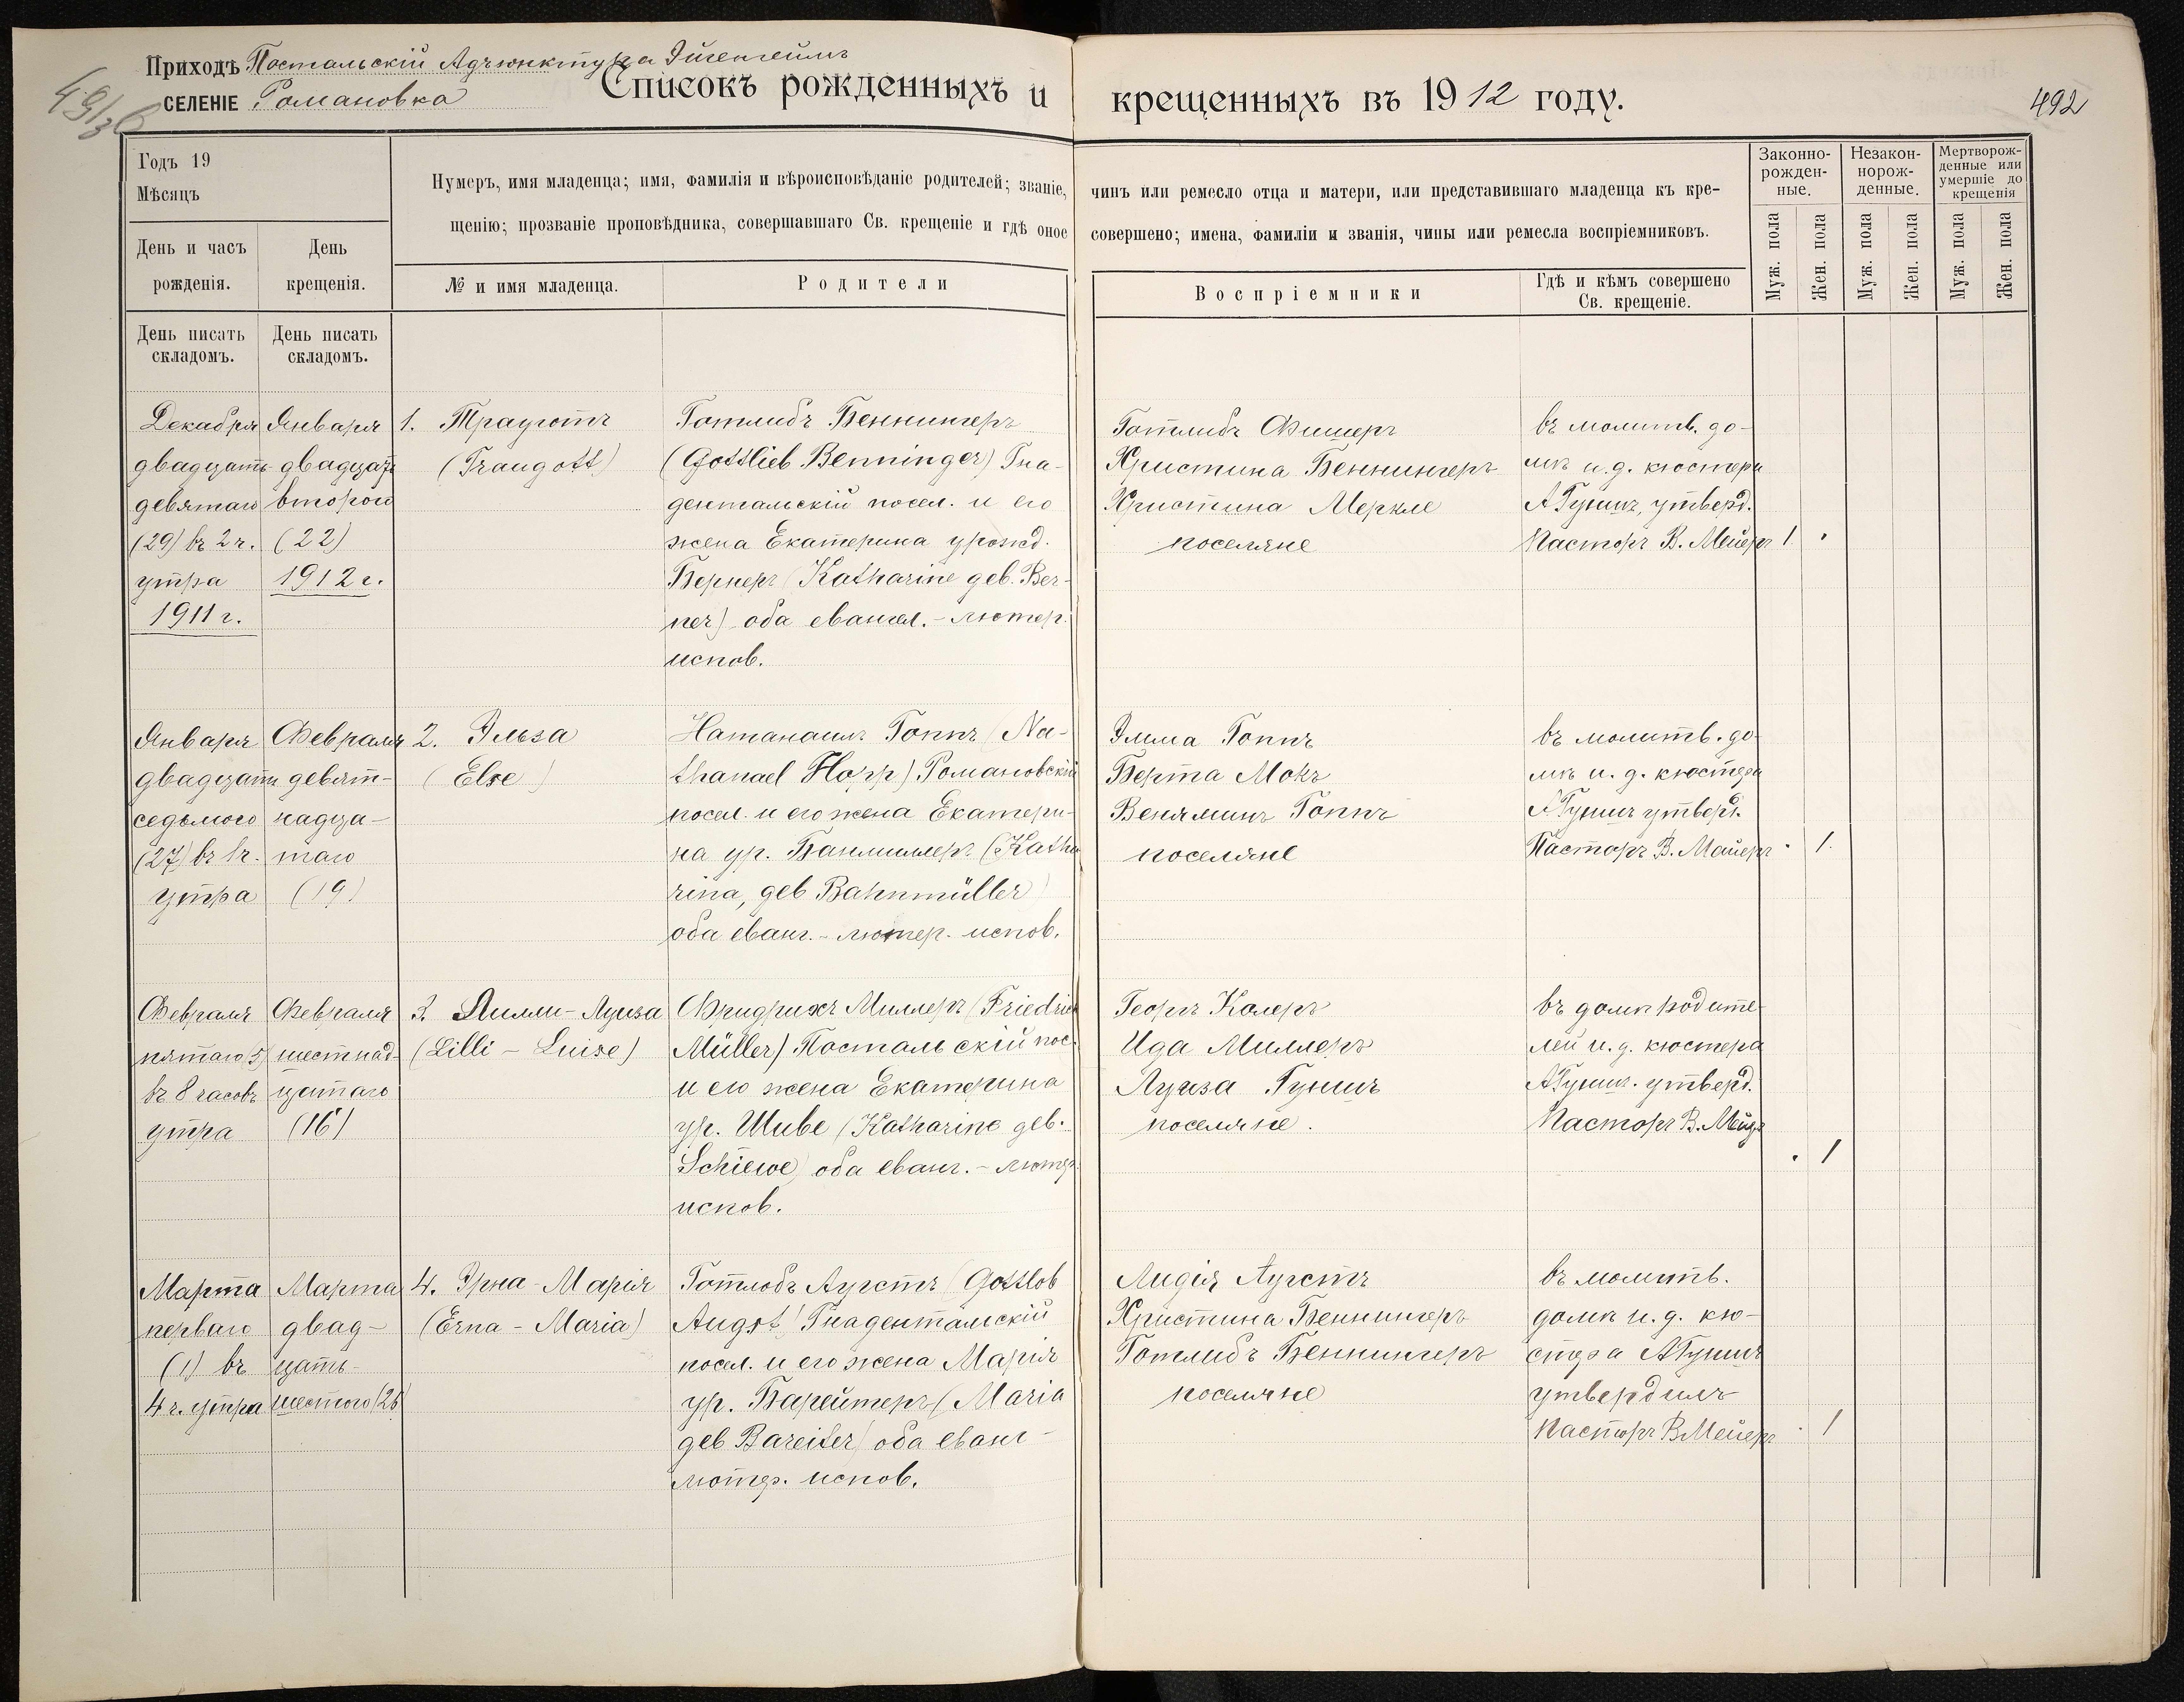 Приходъ Постальскій Адъюнктура Эйгенгеймъ
СЕЛЕНІЕ Романовка
Списокъ рожденныхъ и крещенныхъ въ 1912 году.
492
Годъ 19
Мѣсяцъ
День и часъ
рожденія.
День
крещенія.
Нумеръ, имя младенца; имя, фамилія и вѣроисповѣданіе родителей; званіе, чинъ или ремесло отца и матери, или представившаго младенца къ кре-
щенію; прозваніе проповѣдника, совершавшаго Св. крещеніе и гдѣ оное совершено; имена, фамиліи и званія, чины или ремесла воспріемниковъ.
№ и имя младенца.
Родители
Воспріемники
Гдѣ и кѣмъ совершено
Св. крещеніе.
Законно-
рожден-
ные.
Незакон-
норож-
денные.
Мертворож-
денные или
умершіе до
крещенія
Муж. пола
Жен. пола
Муж. пола
Жен. пола
Муж. пола
Жен. пола
День писать
складомъ.
День писать
складомъ.
Декабря
двадцать
девятаго
(29) въ 2 ч.
утра
1911 г.
Января
двадцать
второго
(22)
1912 г.
1. Трауготъ
(Traugott)
Готлибъ Беннингеръ
(Gottlieb Benninger) Гна-
дентальскій посел. и его
жена Екатерина урожд.
Бернеръ (Katharine geb. Ber-
ner) оба евангел.-лютер.
испов.
Готлибъ Фишеръ
Христина Беннингеръ
Христина Меркле
поселяне
въ молитв. до-
мѣ и.д. кюстера
А Гунишъ, утверд.
Пасторъ В. Мейеръ
1.
Января
двадцати
седьмого
(27) въ 1 ч.
утра
Февраля
девят-
надца-
таго
(19)
2. Эльза
(Else)
Натанаилъ Гоппъ (Na-
thanael Hopp) Романовскій
посел. и его жена Екатери-
на ур. Банмиллеръ (Katha
rina, geb Bahnmüller)
оба еванг.-лютер. испов.
Эмма Гоппъ
Берта Мокъ
Веняминъ Гоппъ
поселяне
въ молитв. до-
мѣ и. д. кюстера
А Гунишъ утверд.
Пасторъ В. Майеръ
1.
Февраля
пятаго (5)
въ 8 часовъ
утра
Февраля
шестнад-
цатаго
(16)
3. Лилли-Луиза
(Lilli-Luise)
Фридрихъ Миллеръ (Friedrich
Müller) Постальскій пос.
и его жена Екатерина
ур. Шиве (Katharine geb.
Schiewe) оба еванг.-лютер.
испов.
Георгъ Колеръ
Ида Миллеръ
Луиза Гунишъ
поселяне.
въ домѣ родите-
лей и.д. кюстера
А Гунишъ. утверд.
Пасторъ В. Мейер
1
Марта
перваго
(1) въ
4 ч. утра
Марта
двад-
цать-
шестого (26)
4. Эрна-Марія
(Erna-Maria)
Готлобъ Аугстъ (Gottlob
Augst) Гнадентальскій
посел. и его жена Марія
ур. Барейтеръ (Maria
geb Bareiter) оба еванг-
лютер. испов.
Лидія Аугстъ
Христина Беннингеръ
Готлибъ Беннингеръ
поселяне
въ молитв.
домѣ и.д. кю-
стера А Гунишъ
утвердилъ
Пасторъ В Мейеръ
1